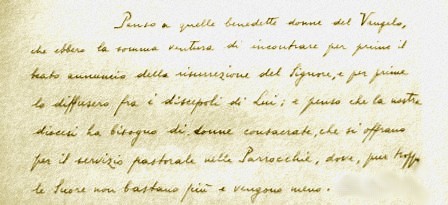 Penso a quelle benedette donne del Vangelo,
che ebbero la somma ventura di incontrare per prime il
beato annuncio della risurrezione del Signore, e per prime
lo diffusero fra i discepoli di Lui; e penso che la nostra
diocesi ha bisogno di donne consacrate, che si offrano
per il servizio pastorale nelle Parrocchie, dove, pur troppo
le Suore non bastano più e vengono meno.